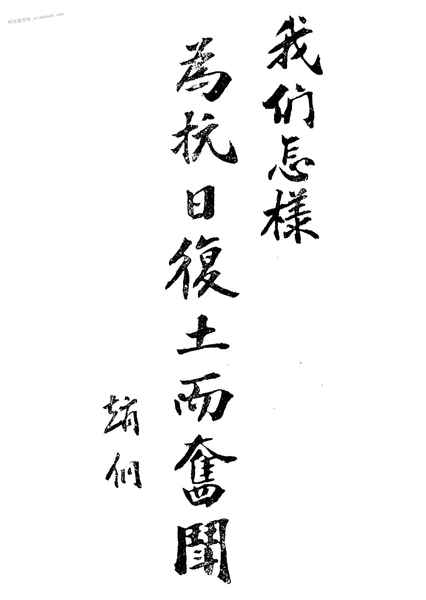 我们怎樣
為抗日復土而奮鬪
趙侗